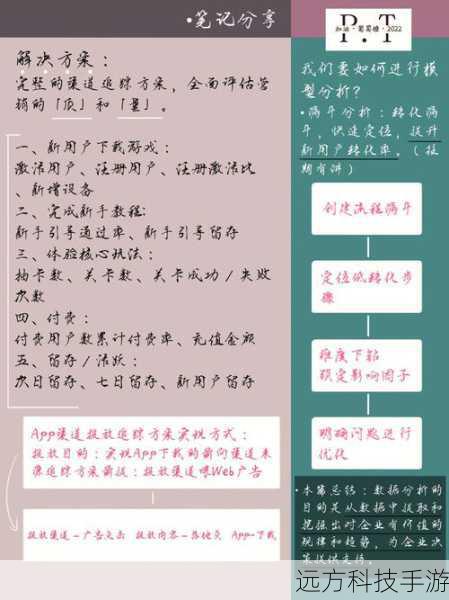 •笔记分享
解决方案：
完整的渠道追踪方案，全面评估营
销的「质」和「量」。
一、新用户下载游戏：
激活用户、注册用户、注册激活比
、新增设备
二、完成新手教程：
新手引导通过率、新手引导留存
三、体验核心玩法：
抽卡数、关卡数、关卡成功／失败
次数
四、付费：
付费用户数累计付费率、充值金额
五、留存／活跃：
次日留存、七日留存、新用户留存
App渠道投放追踪方案实现方式：
投放目的：实现App下载的前向渠道来
源追踪方案前提：投放渠道喂Web广告
投放渠道－广告点击 投放内容－落地页 App-下载
P.T
加油·葡萄糖·2022
我们要如何进行模
型分析？
•漏斗分析：转化漏
斗，快速定位，提升
新用户转化率。（按
期有讲）
创建流程漏斗
定位低转化步
骤
难度下钻
锁定影响因子
明确问题进行
优化
•本篇总结：数据分析的
目的是从数据中提取和
挖掘出对企业有价值的
规律和趋势，为企业决
策提供支持。
远方科技手游